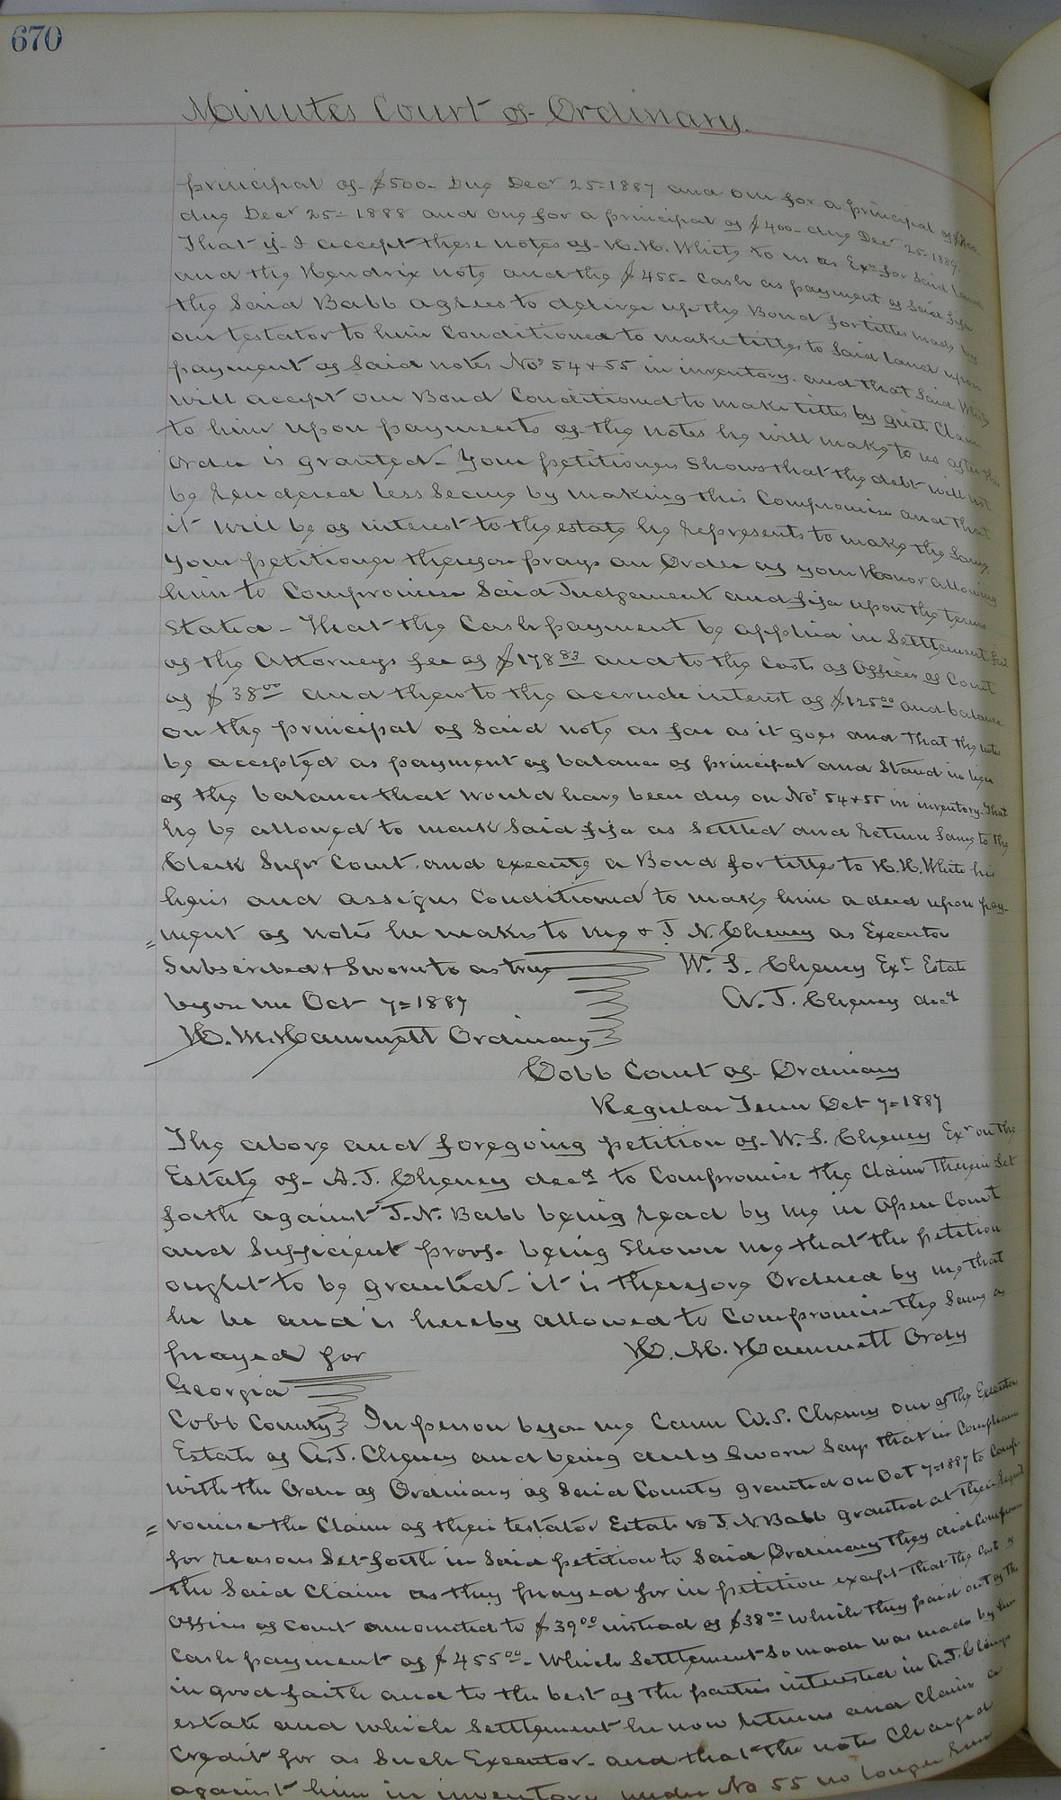 670
Minutes Court of Ordinary.
principal of $500- Due Decr 25=1887 and one for a principal of
due Decr 25= 1888 and one for a principal of $400- due Decr 25=1889
That if I accept these notes of H. H. White to us as Exr for said land
and the Hendrix note and the $455- Cash as payment of said fifa
the said Babb agrees to deliver up the Bond for titles made by
our testator to him Conditioned to make titles to said land upon
payment of said notes Nos 54 & 55 in inventory. and that said White
will accept our Bond Conditioned to make titles by quit Claim
to him upon payments of the notes he will make to us after this
order is granted- Your petitioner shows that the debt will not
be rendered less secure by making this Compromise and that
it will be of interest to the estate he represents to make the same.
Your petitioner therefore prays an Order of your Honor allowing
him to Compromise said Judgement and fifa upon the terms
stated- That the Cash payment be applied in settlement first
of the Attorneys fee of $178 83 and to the Costs of Officers of Court
of $38 00 and then to the accrude interest of $125 00 and balance
on the principal of said note as far as it goes and That the notes
be accepted as payment of balance of principal and stand in lieu
of the balance that would have been due on Nos 54 & 55 in inventory. That
he be allowed to mark said fifa as settled and return same to the
Clerk Supr Court. and execute a Bond for titles to H. H. White his
heirs and assigns Conditioned to make him a deed upon pay-
ment of notes he makes to me & J. N. Cheney as Executor
Subscribed & Sworn to as true W. S. Cheney Exr Estate
before me Oct 7=1887 A. J. Cheney decd
H. M. Hammett Ordinary
Cobb Court of Ordinary
Regular Term Oct 7=1887
The above and foregoing petition of W. S. Cheney Exr on the
Estate of A. J. Cheney decd to Compromise the Claim Therein set
forth against J. N. Babb being read by me in Open Court
and sufficient proof being shown me that the petition
ought to be granted- it is therefore Ordered by me that
he be and is hereby allowed to Compromise the same as
prayed for H. M. Hammett Ordy
Georgia
Cobb County In person before me Came W. S. Cheney one of the Executors
Estate of A. J. Cheney and being duly sworn says that in Compliance
with the Order of Ordinary of said County granted on Oct 7=1887 to Comp-
romise the Claim of their testator Estate vs J. N. Babb granted at their
for reasons set forth in said petition to said Ordinary they did Compromise
the said Claim as they prayed for in petition except that the Cost of
Officers of Court amounted to $39 00 instead of $38 00 which they paid out of the
Cash payment of $455 00- Which settlement so made was made by him
in good faith and to the best of the parties interested in A. J. Cheneys
estate and which settlement he now returns and Claims a
Credit for as such Executor- and that the note Charged
against him in inventory under No 55 no longer